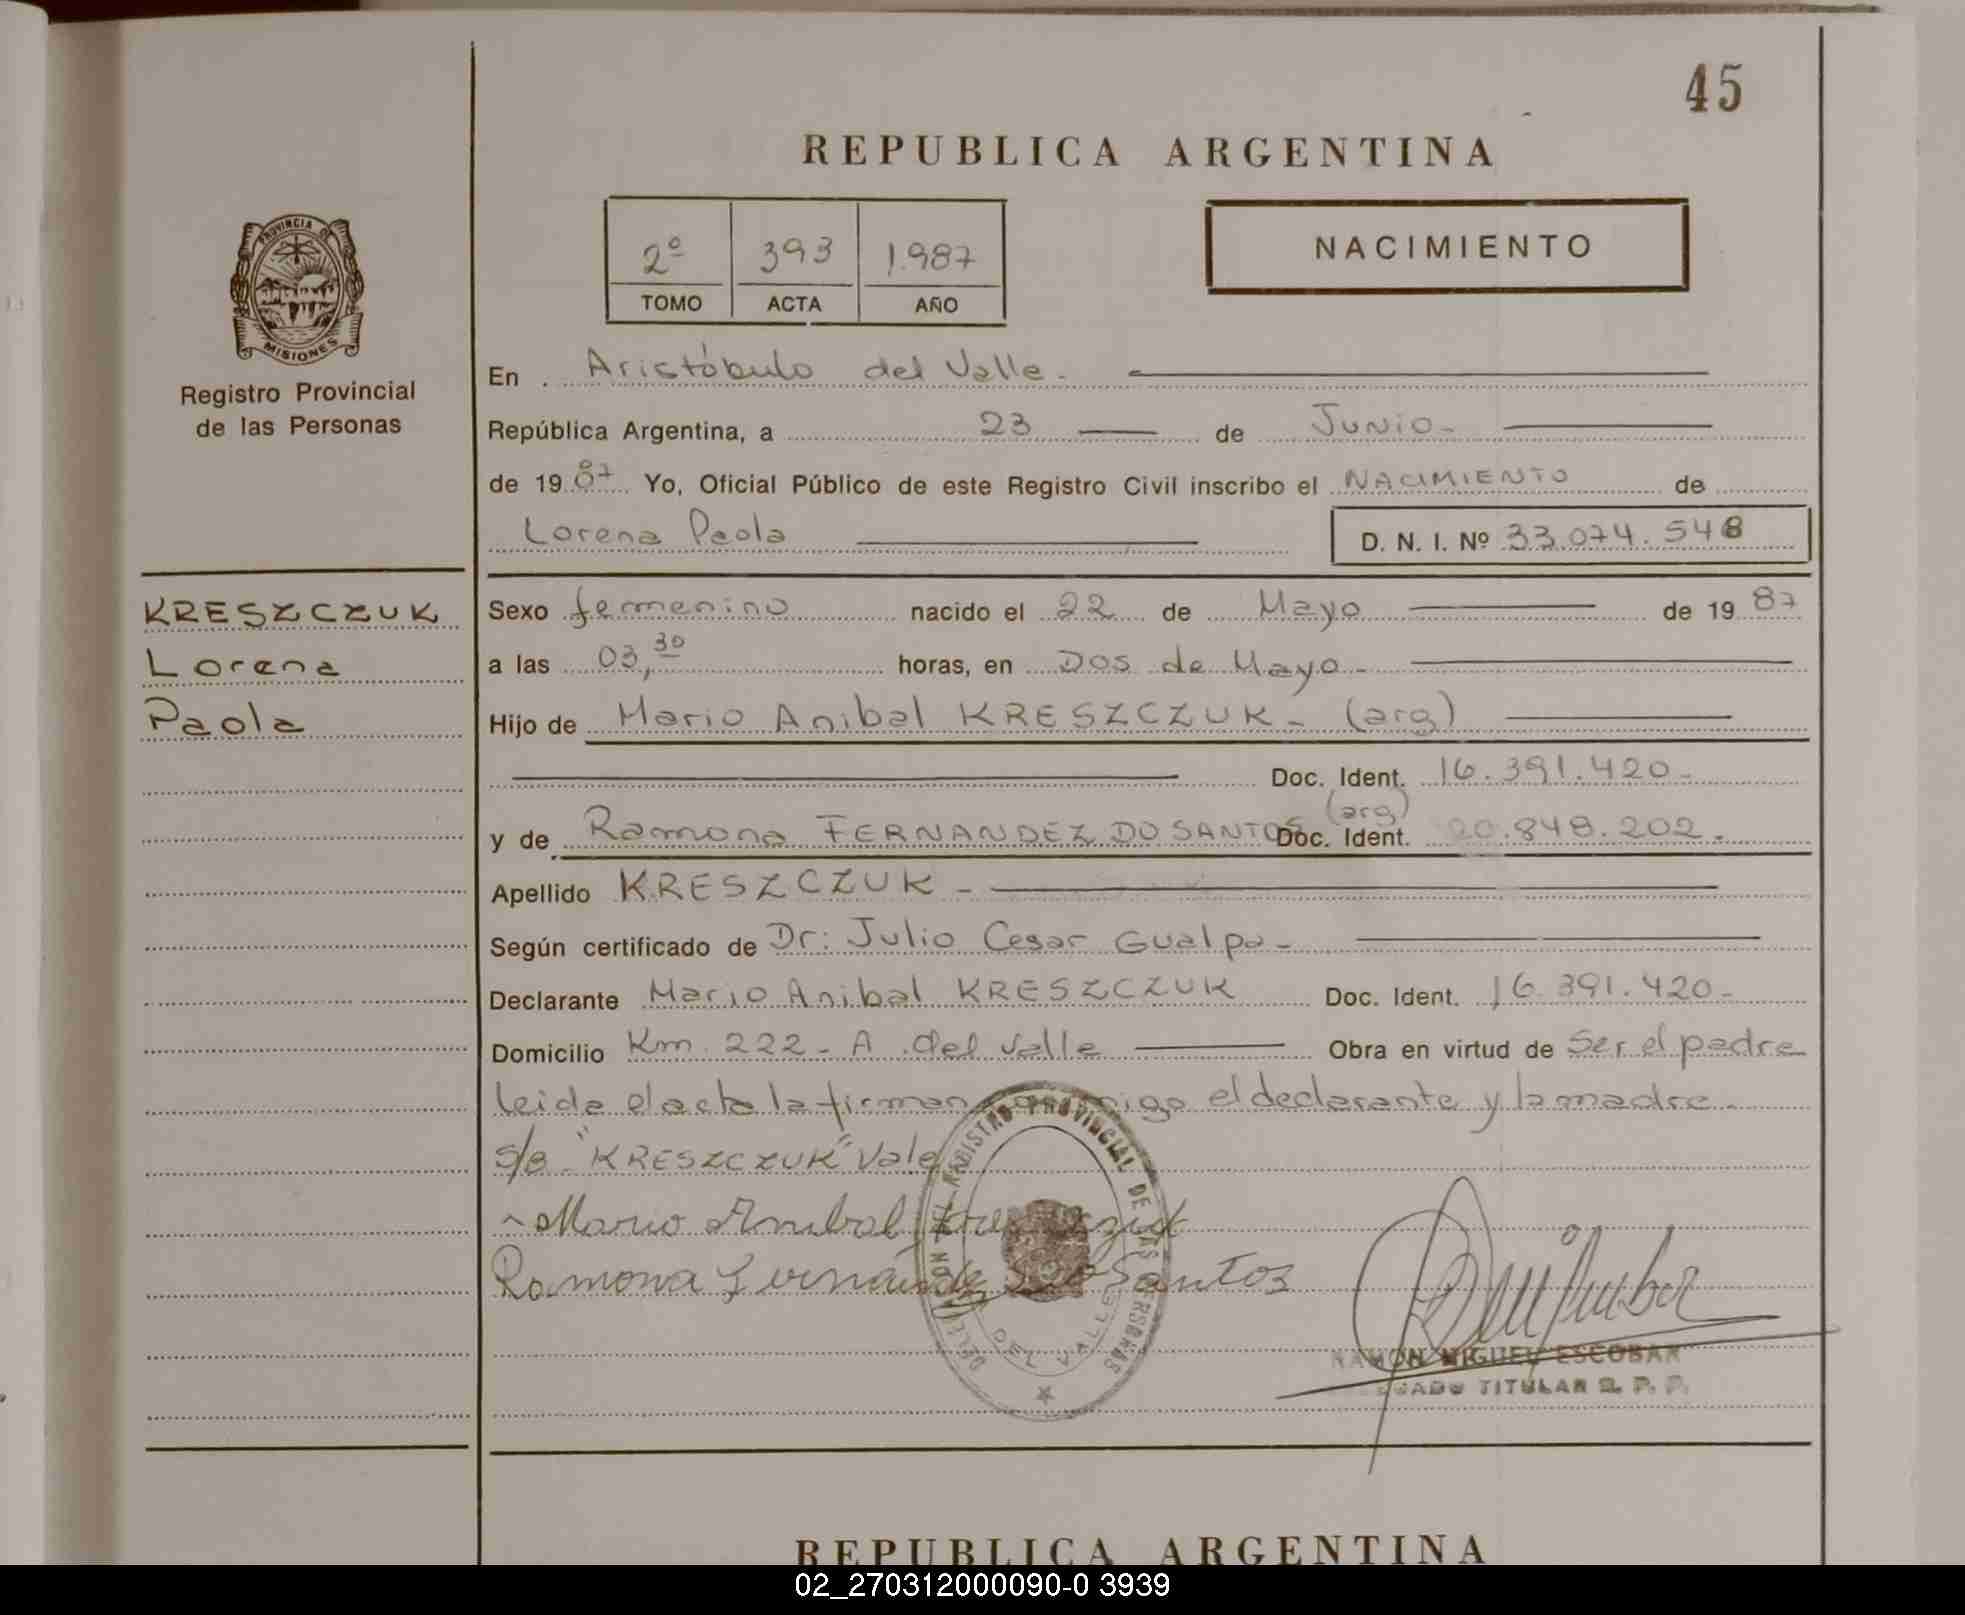 45
REPUBLICA ARGENTINA
2º 393 1.987
TOMO ACTA AÑO
NACIMIENTO
PROVINCIA DE
MISIONES
Registro Provincial
de las Personas
En Aristóbulo del Valle.-
República Argentina, a 23 de Junio-
de 19 87 Yo, Oficial Público de este Registro Civil inscribo el NACIMIENTO de
Lorena Paola
D. N. I. Nº 33.074.548
KRESZCZUK
Lorena
Paola
Sexo femenino nacido el 22 de Mayo de 19 87
a las 03,30 horas, en Dos de Mayo-
Hijo de Mario Anibal KRESZCZUK- (arg)
Doc. Ident. 16.391.420-
(arg)
y de Ramona FERNANDEZ DO SANTOS Doc. Ident. 20.848.202.
Apellido KRESZCZUK-
Según certificado de Dr: Julio Cesar Gualpa-
Declarante Mario Anibal KRESZCZUK Doc. Ident. 16.391.420-
Domicilio Km. 222- A. del Valle Obra en virtud de Ser el padre
leida el acta la firman conmigo el declarante y la madre-
S/B "KRESZCZUK" Vale
Mario Anibal Kreszczuk
Ramona Fernández Do Santos
REGISTRO PROVINCIAL DE LAS PERSONAS
DEL VALLE
RAMON MIGUEL ESCOBAR
TITULAR R. P. P.
REPUBLICA ARGENTINA
02_270312000090-0 3939